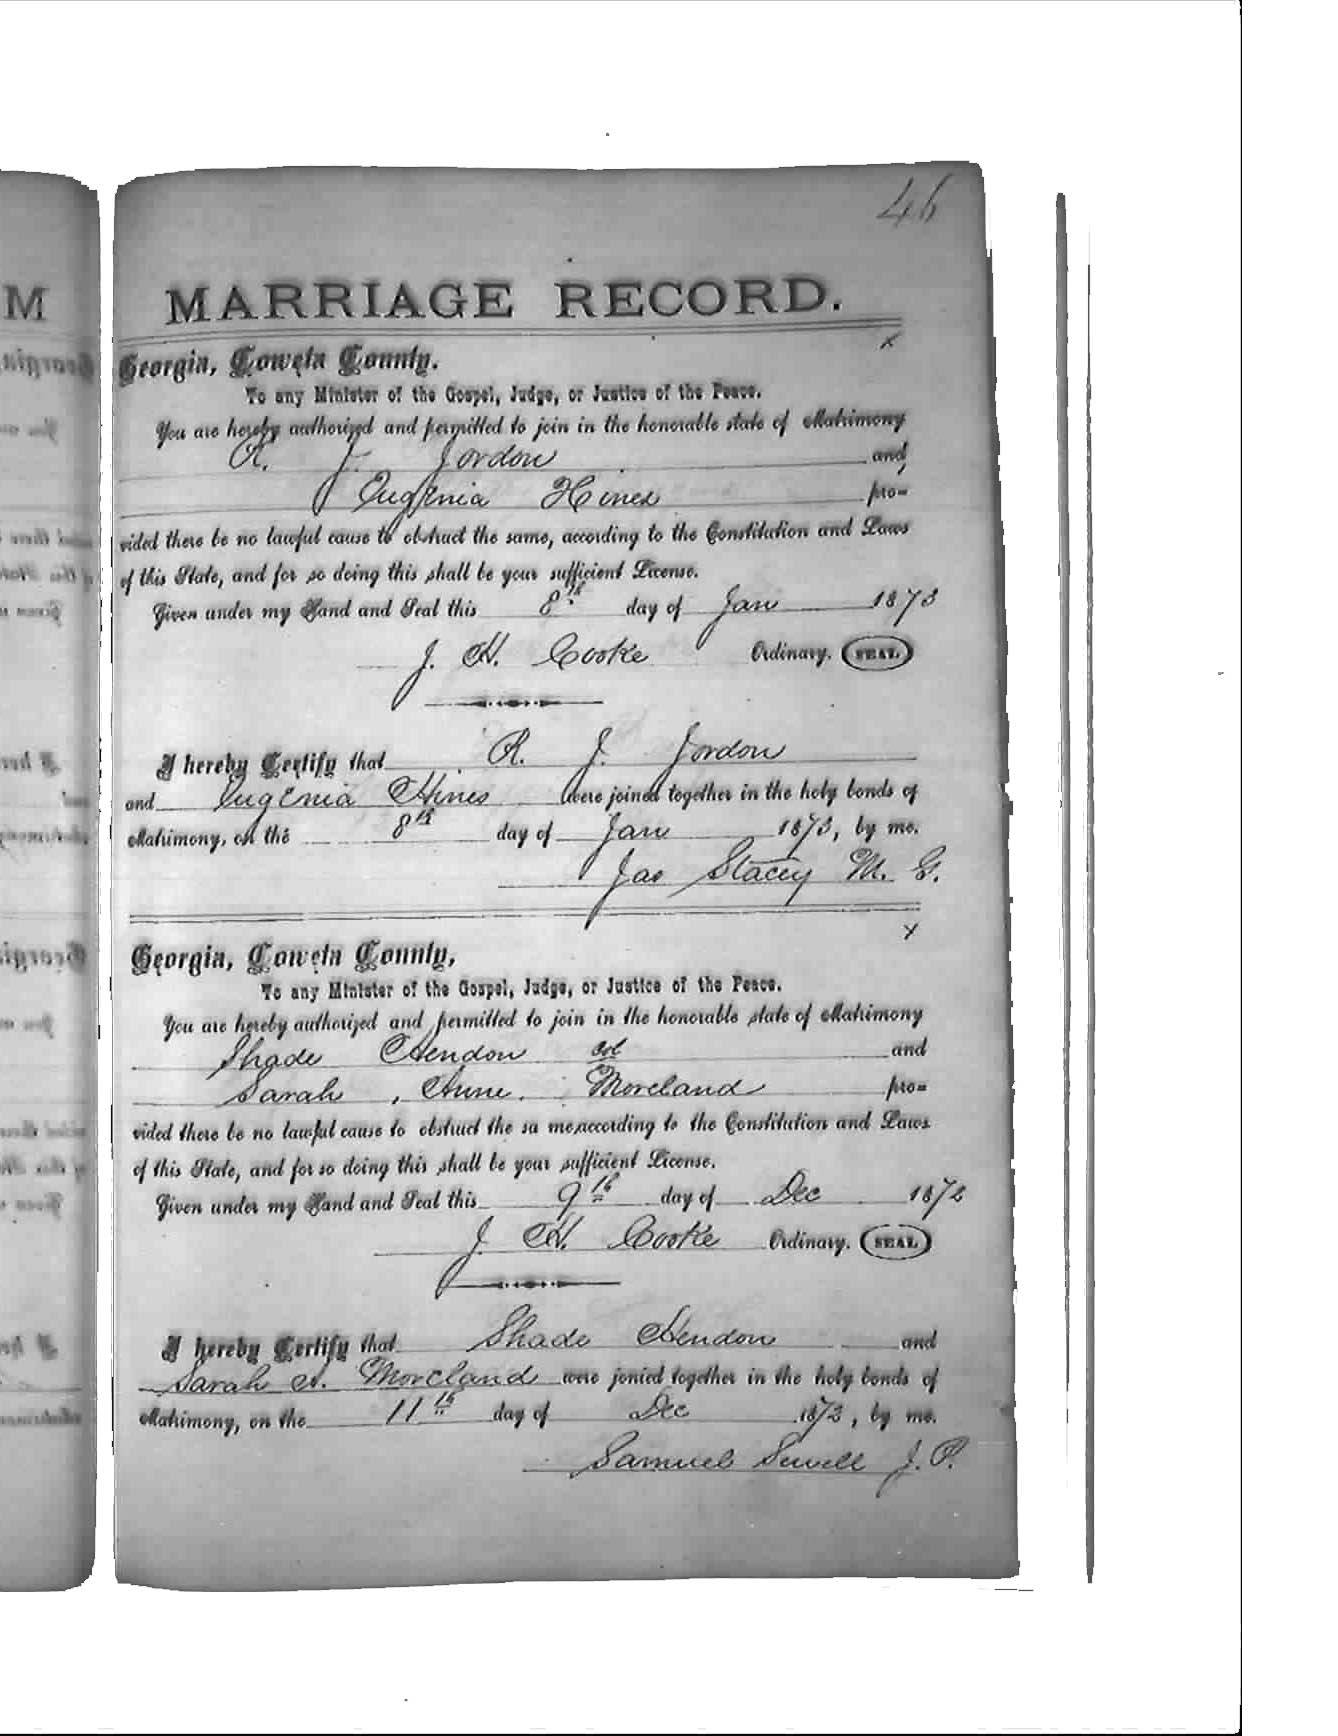 46
M
MARRIAGE RECORD.
x
Georgia, Coweta County.
To any Minister of the Gospel, Judge, or Justice of the Peace.
You are hereby authorized and permitted to join in the honorable state of Matrimony
R. J. Jordon and
Eugenia Hines pro=
vided there be no lawful cause to obstruct the same, according to the Constitution and Laws
of this State, and for so doing this shall be your sufficient License.
Given under my Hand and Seal this 8th day of Jan 1873
J. H. Cooke Ordinary. SEAL
I hereby Certify that R. J. Jordon
and Eugenia Hines were joined together in the holy bonds of
Matrimony, on the 8th day of Jan 1873, by me.
Jas Stacey M. G.
x
Georgia, Coweta County,
To any Minister of the Gospel, Judge, or Justice of the Peace.
You are hereby authorized and permitted to join in the honorable state of Matrimony
Shade Hendon col and
Sarah, Anne. Moreland pro=
vided there be no lawful cause to obstruct the sa me,according to the Constitution and Laws
of this State, and for so doing this shall be your sufficient License.
Given under my Hand and Seal this 9th day of Dec 1872
J. H. Cooke Ordinary. SEAL
I hereby Certify that Shade Hendon and
Sarah A. Moreland were jonied together in the holy bonds of
Matrimony, on the 11th day of Dec 1873, by me.
Samuel Sewell J. P.